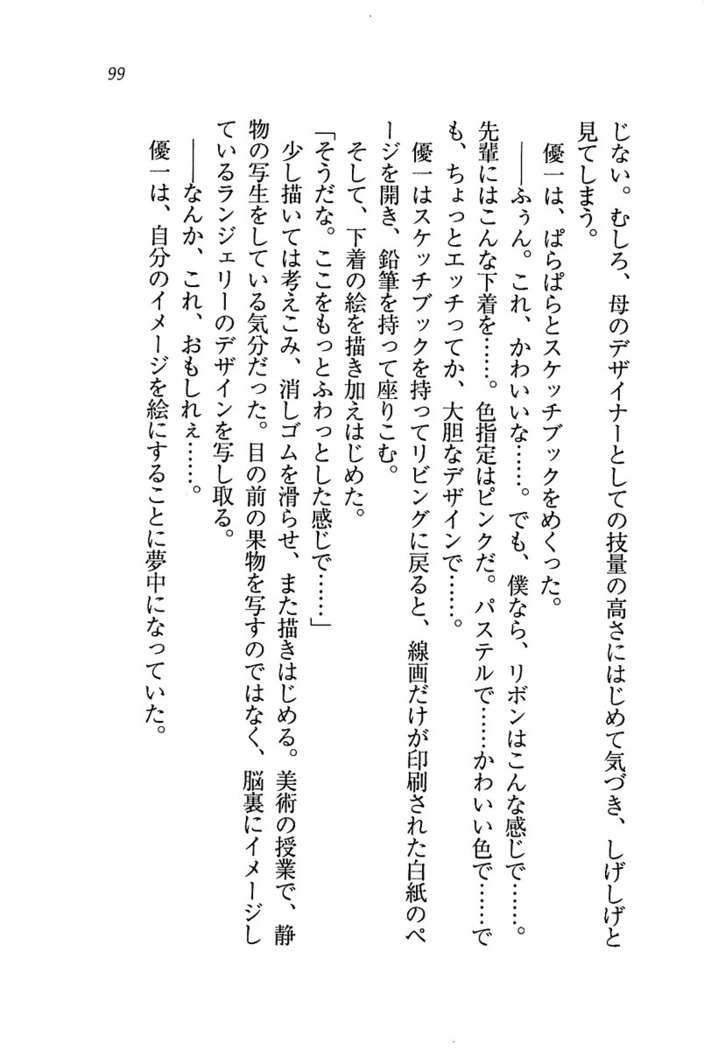 99
じない。むしろ、母のデザイナーとしての技量の高さにはじめて気づき、しげしげと
見てしまう。
優一は、ぱらぱらとスケッチブックをめくった。
――ふぅん。これ、かわいいな……。でも、僕なら、リボンはこんな感じで……。
先輩にはこんな下着を……。色指定はピンクだ。パステルで……かわいい色で……で
も、ちょっとエッチってか、大胆なデザインで……。
優一はスケッチブックを持ってリビングに戻ると、線画だけが印刷された白紙のペ
ージを開き、鉛筆を持って座りこむ。
そして、下着の絵を描き加えはじめた。
「そうだな。ここをもっとふわっとした感じで……」
少し描いては考えこみ、消しゴムを滑らせ、また描きはじめる。美術の授業で、静
物の写生をしている気分だった。目の前の果物を写すのではなく、脳裏にイメージし
ているランジェリーのデザインを写し取る。
――なんか、これ、おもしれぇ……。
優一は、自分のイメージを絵にすることに夢中になっていた。